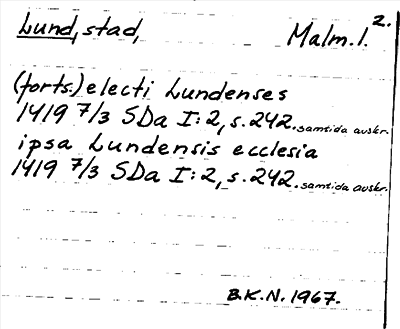 Lund, stad, Malm. l. 2.
(forts.) electi Lundenses
1419 7/3 SDa I:2, s. 242. samtida avskr.
ipsa Lundensis ecclesia
1419 7/3 SDa I:2, s. 242. samtida avskr.
B.K.N. 1967.